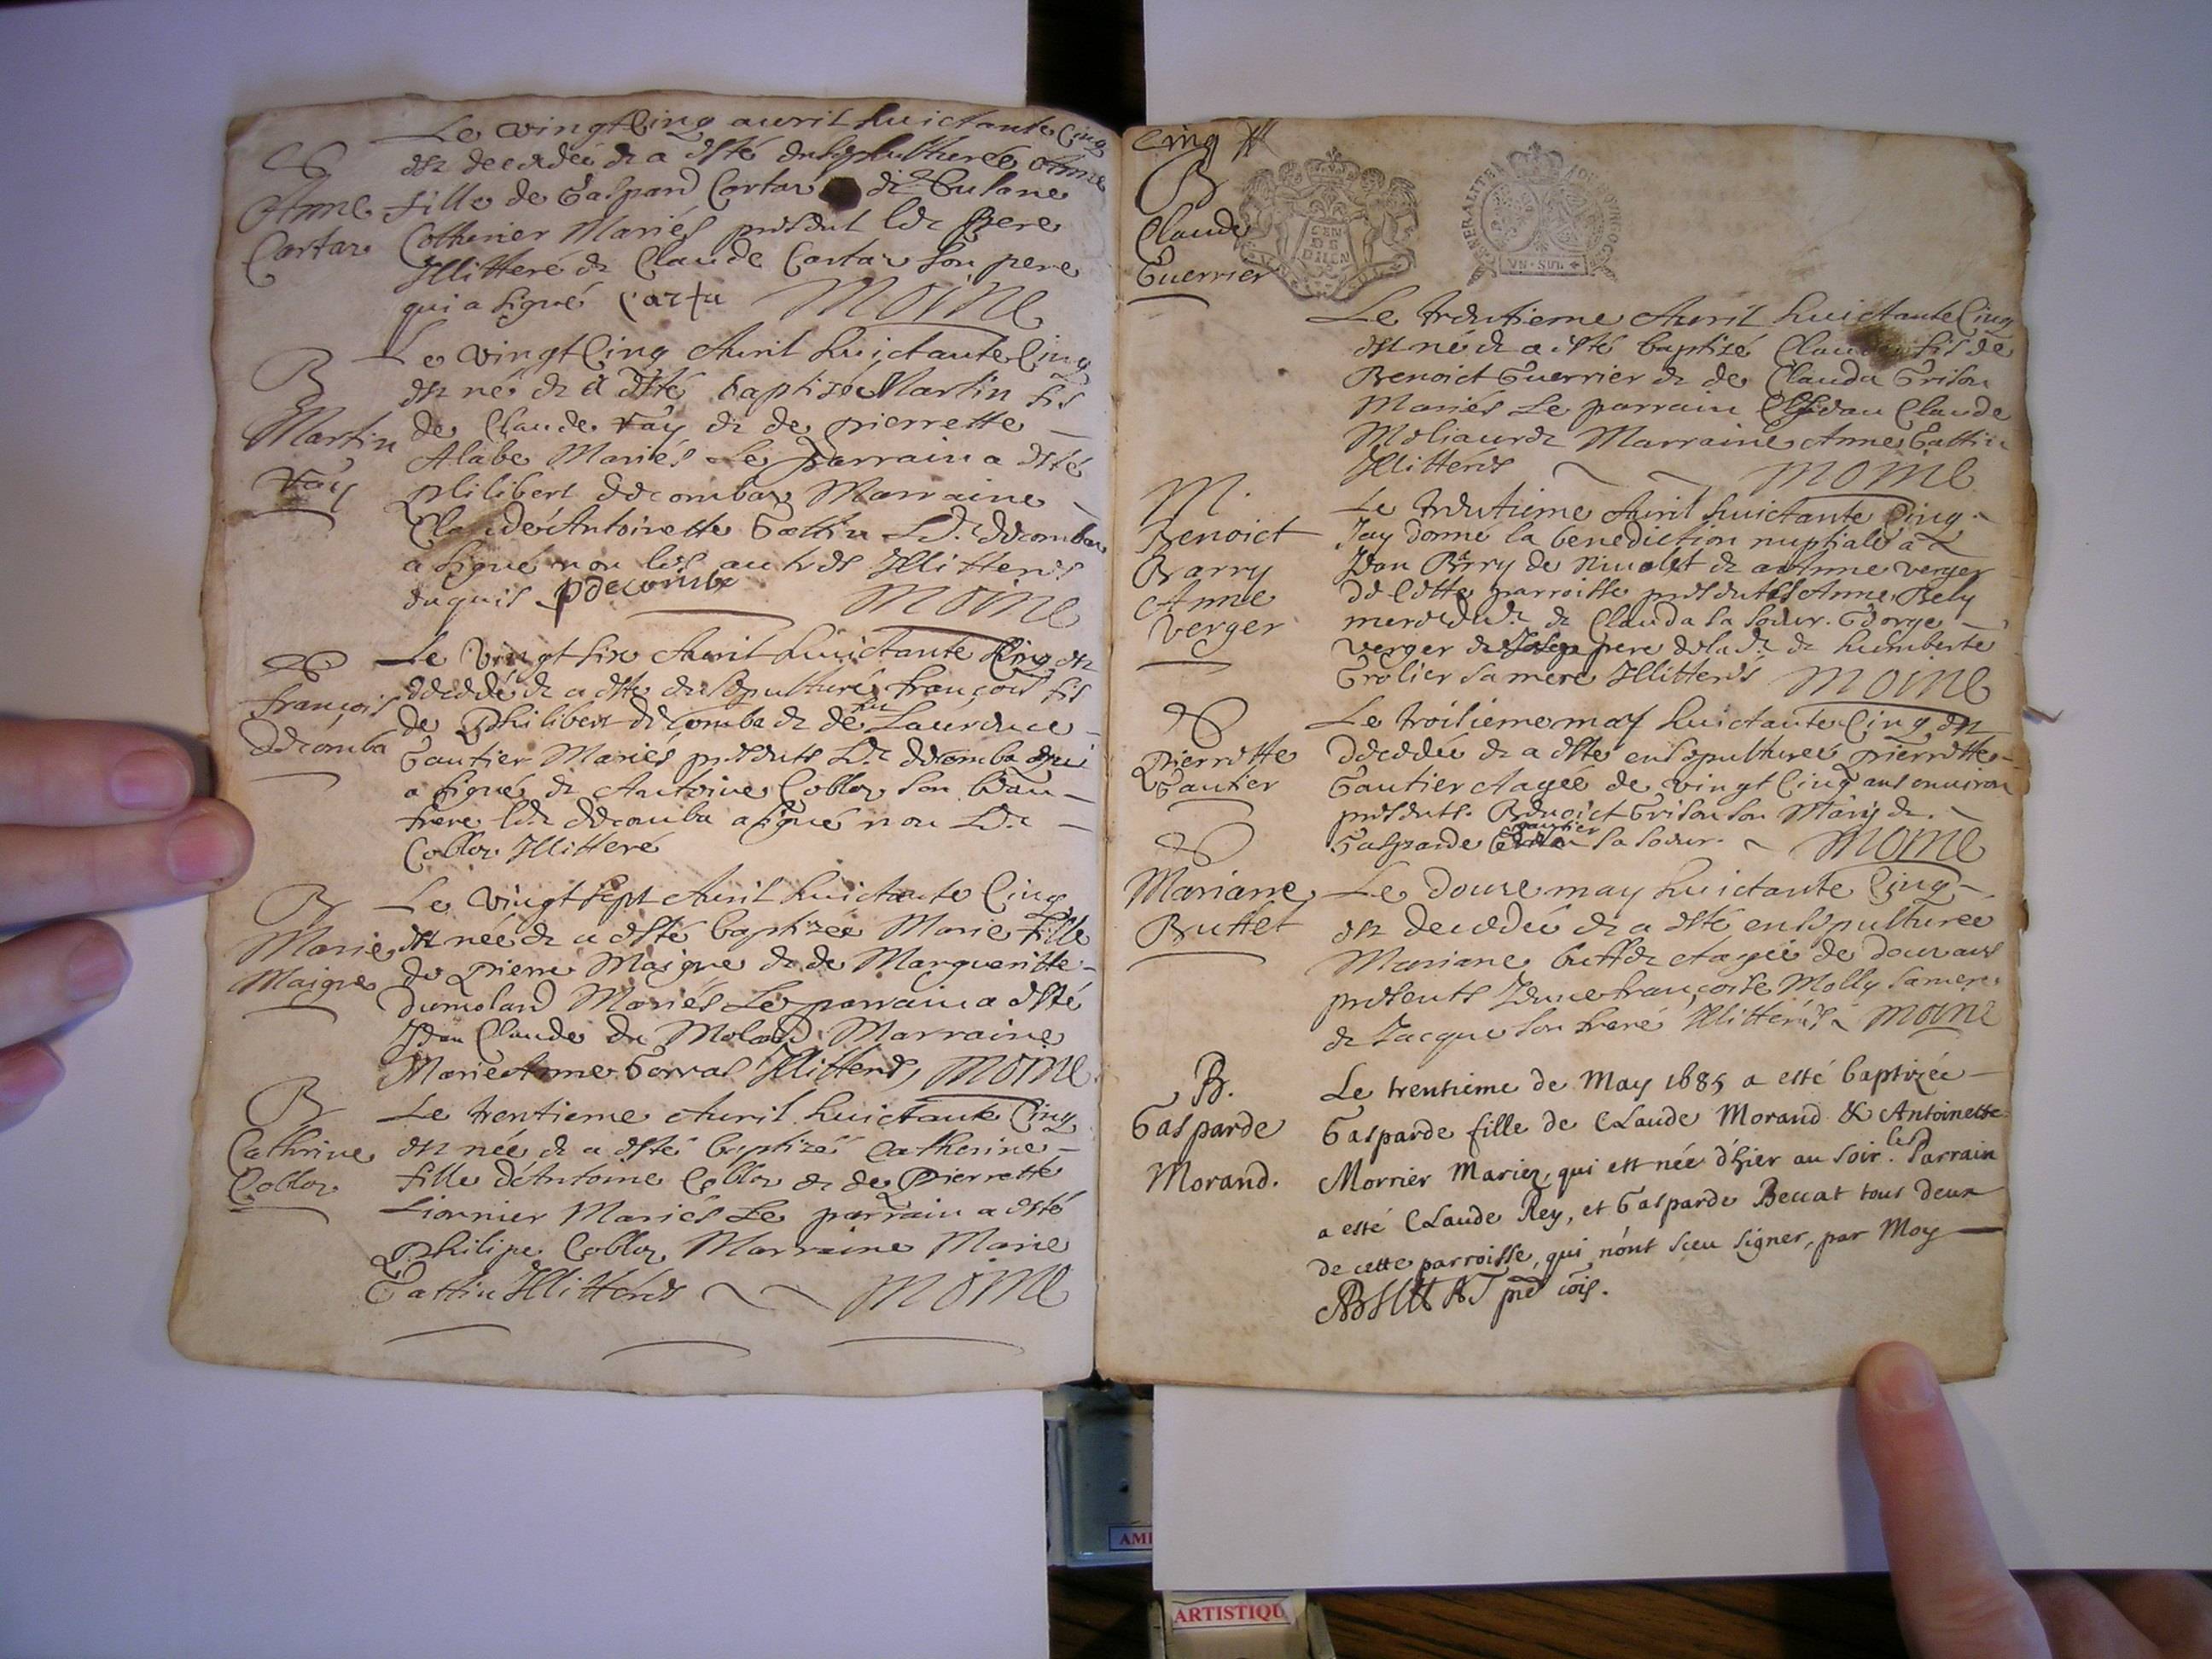 Le vingt Cinq auril huictante Cinq
est decedée & a esté ensepulturée Anne
Anne
Cartar
fille de Gaspard Cartar & Gulane
Mariés present ledt Pere
Illitteré & Claude Cartar son pere
qui a signé Carta Moine
B
Martin
Vay
Le vingt Cinq Auril huictante Cinq
est né & a esté baptisé Martin fils
de Claude Vay & de pierrette
Alabe Mariés Le Parrain a esté
philibert decombaz Marraine
Claude Antoinette Gattin Ledt decombaz
a signé non les autres Illitterés
enquis pdecomba Moine
françois
Decomba
Le vingt six Auril huictante Cinq est
decedé & a esté ensepulturé françois fils
de Philibert decomba & de Laurence
Gautier Mariés presents Ledt decomba qui
a signé & Antoine Cobloz son beau
frere ledt decomba a signé non Ledt
Cobloz Illitteré
B
Marie
Maigre
Le vingt sept Auril huictante Cinq
est née & a esté baptizée Marie fille
de Pierre Maigre & de Margueritte
Dumoland Mariés Le parrain a esté
Jean Claude du Molard Marraine
Marie Anne Gorras Illitterés, Moine
B
Cathrine
Cobloz
Le trentieme Auril huictante Cinq
est née & a esté baptizée Catherine
fille d'Antoine Cobloz & de Pierrette
Liornier Mariés Le parrain a esté
Philipe Cobloz Marraine Marie
Gattin Illitterés Moine
Cinq
GENERALITE DE BOVRGOGNE
GEN
DE
DIION
VN · SOL
B
Claude
Guerrier
Le trentieme Auril huictante Cinq
est né & a esté baptizé Claude fils de
Benoict Guerrier & de Clauda Grison
Mariés Le parrain Jean Claude
Moliaur & Marraine Anne Gattin
Illitterés Moine
M.
Benoict
Barry
Anne
Verger
Le trentieme Auril huictante Cinq
Jay donné la benediction nuptiale a
Jean Barry de Nivolet & a Anne verger
de Cette parroisse presents Anne Bely
mere dudt & Clauda sa soeur. George
Verger & Joseph pere de lade & humberte
Grolier sa mere Illitterés Moine
Pierrette
Gautier
Le troisieme may huictante Cinq est
decedée & a esté ensepulturée pierrette
Gautier Aagée de vingt Cinq ans environ
presents. Benoict Grison son Mary &
Gasparde gautier sa soeur. Moine
Mariane
Buffet
Le douze may huictante Cinq
est decedée & a esté ensepulturée
Mariane buffet Aagée de douz ans
presents Jeane françoise Molly sa mere
& Jacque son frere Illitterés Moine
B.
Gasparde
Morand.
Le trentieme de May 1685 a esté baptizée
Gasparde fille de Claude Morand & Antoinette
Morrier Mariez, qui est née d'hier au soir. Les Parrain
a esté Claude Rey, et Gasparde Beccat tous deux
de cette parroisse, qui n'ont sceu signer, par Moy
AMI
ARTISTIQU